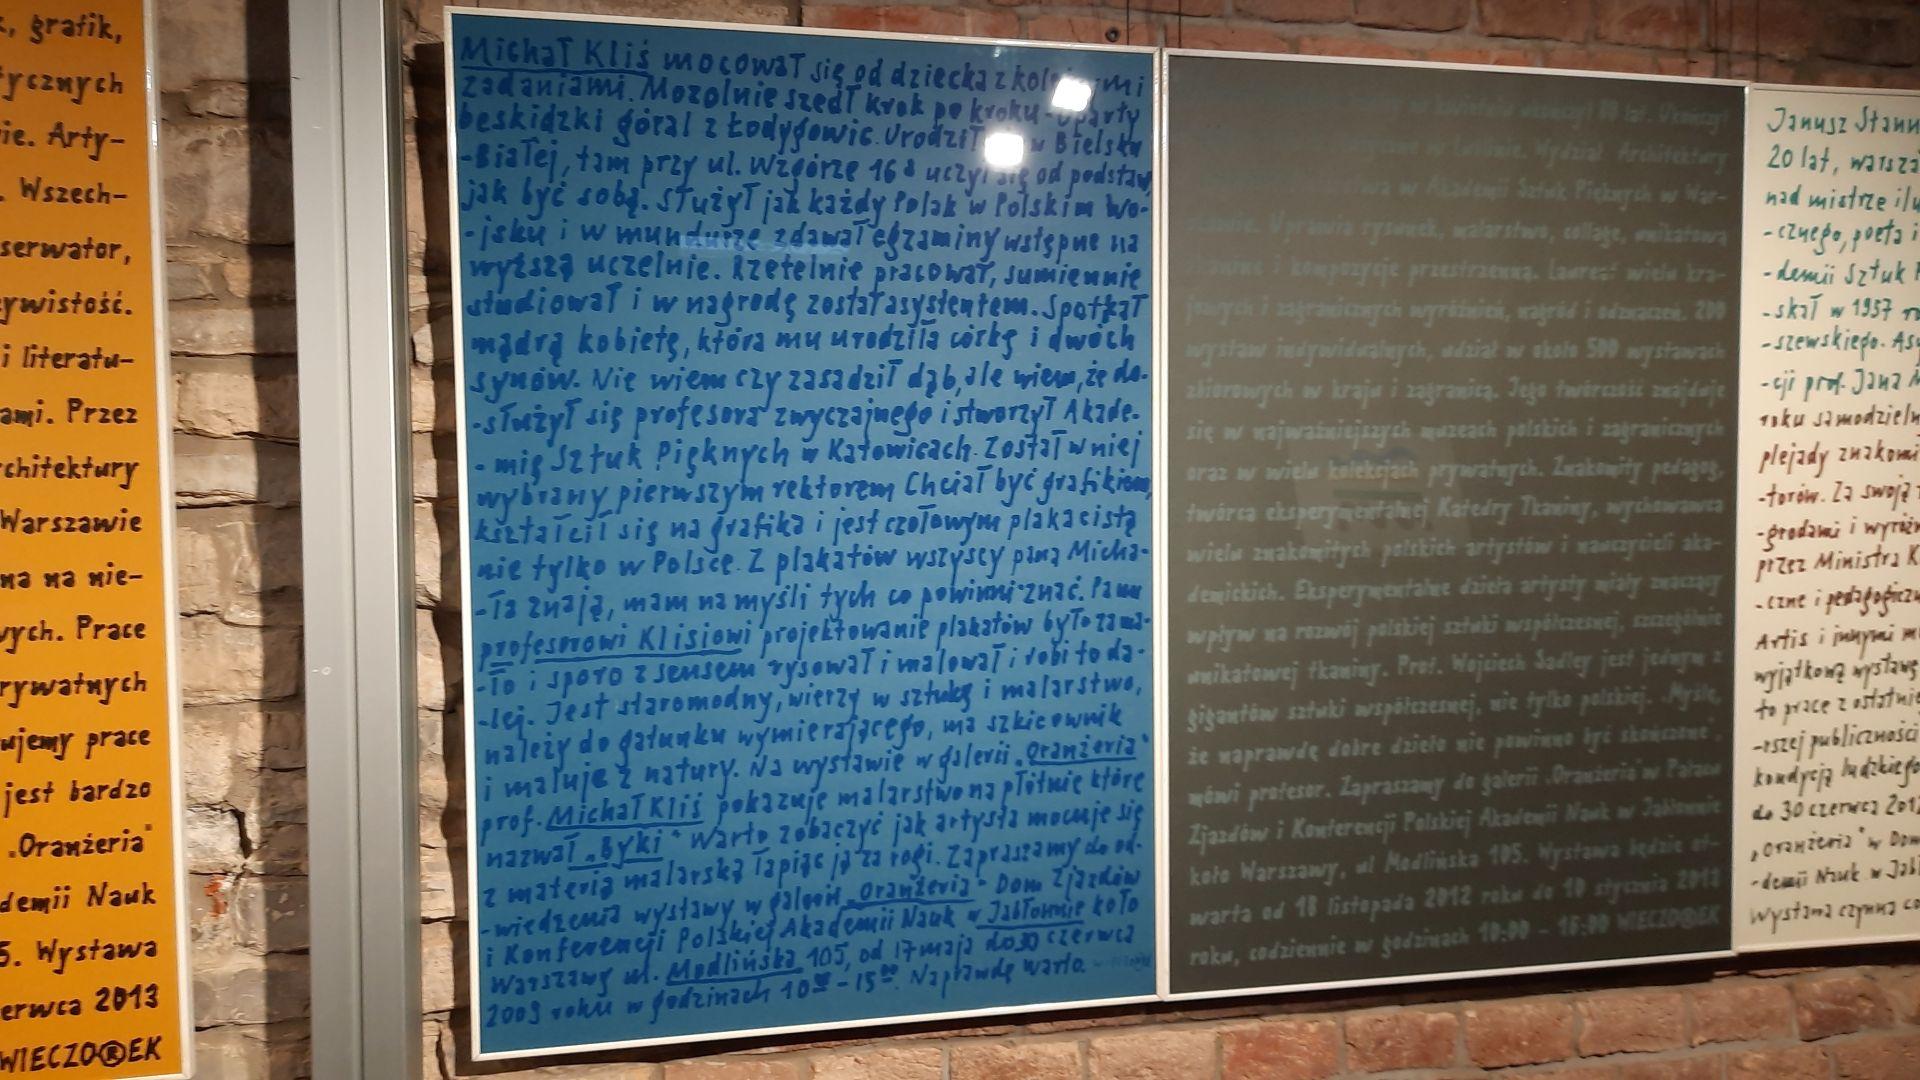 , grafik,
ycznych
ie. Arty-
. Wszech-
serwator,
ywistość.
i literatu-
ami. Przez
rchitektury
Warszawie
na na nie-
ych. Prace
rywatnych
ujemy prace
jest bardzo
„Oranżeria"
demii Nauk
5. Wystawa
erwca 2013
WIECZO®EK
Michał Kliś mocował się od dziecka z
zadaniami. Mozolnie szedł krok po kroku uparty
beskidzki góral z Łodygowic. Urodził w Bielsku
-Białej, tam przy ul. Wzgórze 16 uczył się od podstaw,
jak być sobą. Służył jak każdy Polak w Polskim Wo-
-jsku i w mundurze zdawał egzaminy wstępne na
wyższą uczelnie. Rzetelnie pracował, sumiennie
studiował i w nagrodę został asystentem. Spotkał
mądrą kobietę, która mu urodziła córkę i dwóch
synów. Nie wiem czy zasadził dąb, ale wiem, że do-
-służył się profesora zwyczajnego i stworzył Akade-
-mię Sztuk Pięknych w Katowicach. Został w niej
wybrany pierwszym rektorem Chciał być grafikiem,
kształcił się na grafika i jest czołowym plakacistą
nie tylko w Polsce. Z plakatów wszyscy pana Micha-
-ła znają, mam na myśli tych co powinni znać. Panu
profesorowi Klisiowi projektowanie plakatów było za ma-
-ło i sporo z sensem rysował i malował i robi to da-
-lej. Jest staromodny, wierzy w sztukę i malarstwo,
należy do gatunku wymierającego, ma szkicownik
i maluje z natury. Na wystawie w galerii „Oranżeria"
prof. Michał Kliś pokazuje malarstwo na płótnie które
nazwał „Byki" Warto zobaczyć jak artysta mocuje się
z materią malarską łapiąc ją za rogi. Zapraszamy do od-
-wiedzenia wystawy w galerii „Oranżeria" Dom Zjazdów
i Konferencji Polskiej Akademii Nauk w Jabłonnie koło
Warszawy ul. Modlińska 105, od 17 maja do 30 czerwca
2009 roku w godzinach 10⁰⁰ - 15⁰⁰. Naprawdę warto.
w kwietniu ukończył 80 lat. Ukończył
w Lublinie. Wydział Architektury
w Akademii Sztuk Pięknych w War-
szawie. Uprawia rysunek, malarstwo, collage, unikatową
tkaninę i kompozycje przestrzenną. Laureat wielu kra-
jowych i zagranicznych wyróżnień, nagród i odznaczeń. 200
wystaw indywidualnych, udział w około 500 wystawach
zbiorowych w kraju i zagranicą. Jego twórczość znajduje
się w najważniejszych muzeach polskich i zagranicznych
oraz w wielu kolekcjach prywatnych. Znakomity pedagog,
twórca eksperymentalnej Katedry Tkaniny, wychowawca
wielu znakomitych polskich artystów i nauczycieli aka-
demickich. Eksperymentalne dzieła artysty miały znaczący
wpływ na rozwój polskiej sztuki współczesnej, szczególnie
unikatowej tkaniny. Prof. Wojciech Sadley jest jednym z
gigantów sztuki współczesnej, nie tylko polskiej. „Myślę,
że naprawdę dobre dzieło nie powinno być skończone",
mówi profesor. Zapraszamy do galerii „Oranżeria" w Pałacu
Zjazdów i Konferencji Polskiej Akademii Nauk w Jabłonnie
koło Warszawy, ul Modlińska 105. Wystawa będzie ot-
warta od 18 listopada 2012 roku do 10 stycznia 2013
roku, codziennie w godzinach 10:00 - 16:00 WIECZO®EK
Janusz Stann
20 lat, warsza
nad mistrze ilu
-cznego, poeta i
-demii Sztuk P
-skał w 1957 ro
-szewskiego. Asy
-cji prof. Jana M
roku samodzieln
plejady znakomi
-torów. Za swoją
-grodami i wyróżn
przez Ministra K
-czne i pedagogiczn
Artis i innymi m
wyjątkową wystawę
to prace z ostatnie
-rszej publiczności
kondycją ludzkiego
do 30 czerwca 201
„Oranżeria" w Dom
-demii Nauk w Jabł
Wystawa czynna co